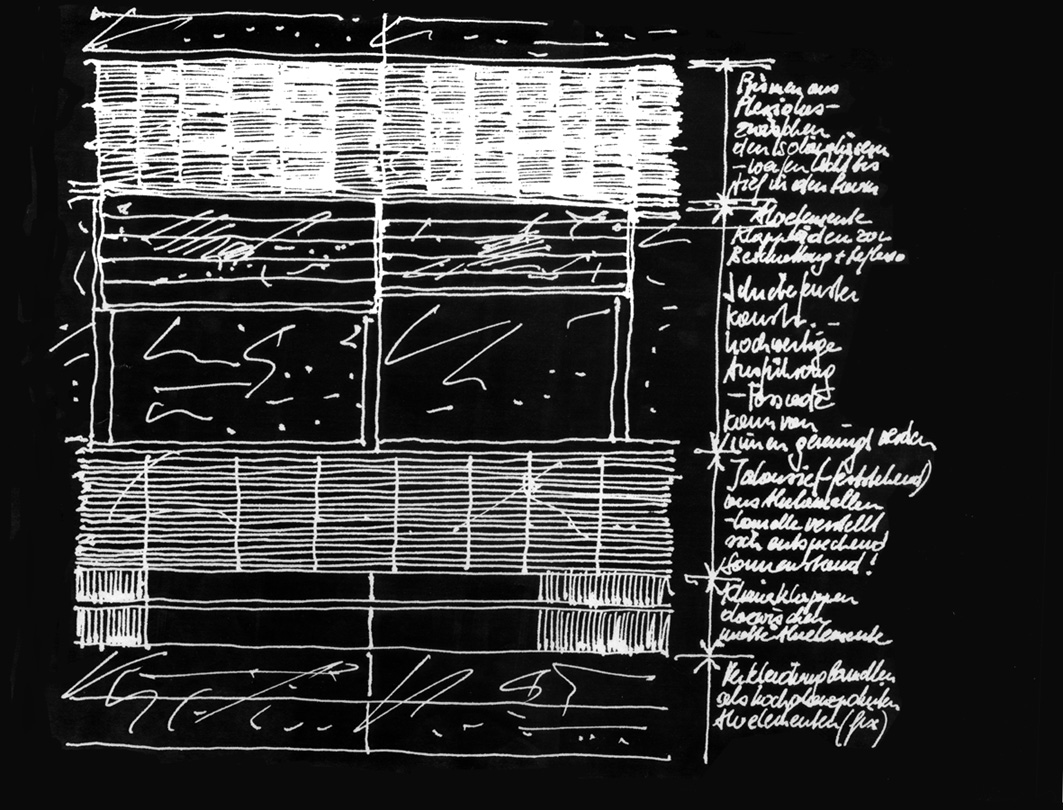 Prismen aus
Plexiglas-
zwischen
den Isolargläsern
- werfen Licht bis
tief in den Raum
Aluelemente
Klappläden zur
Beschattung + Reflexion
Schiebefenster
konstr. -
hochwertige
Ausführung
- Fassade
kann von
innen gereinigt werden
Jalousie (feststehend)
aus Alulamellen
- Lamelle verstellt
sich entsprechend
Sonnenstand!
Klimaklappen
dazwischen
matte Aluelemente
Verkleidung
als
Aluelementen (fix)